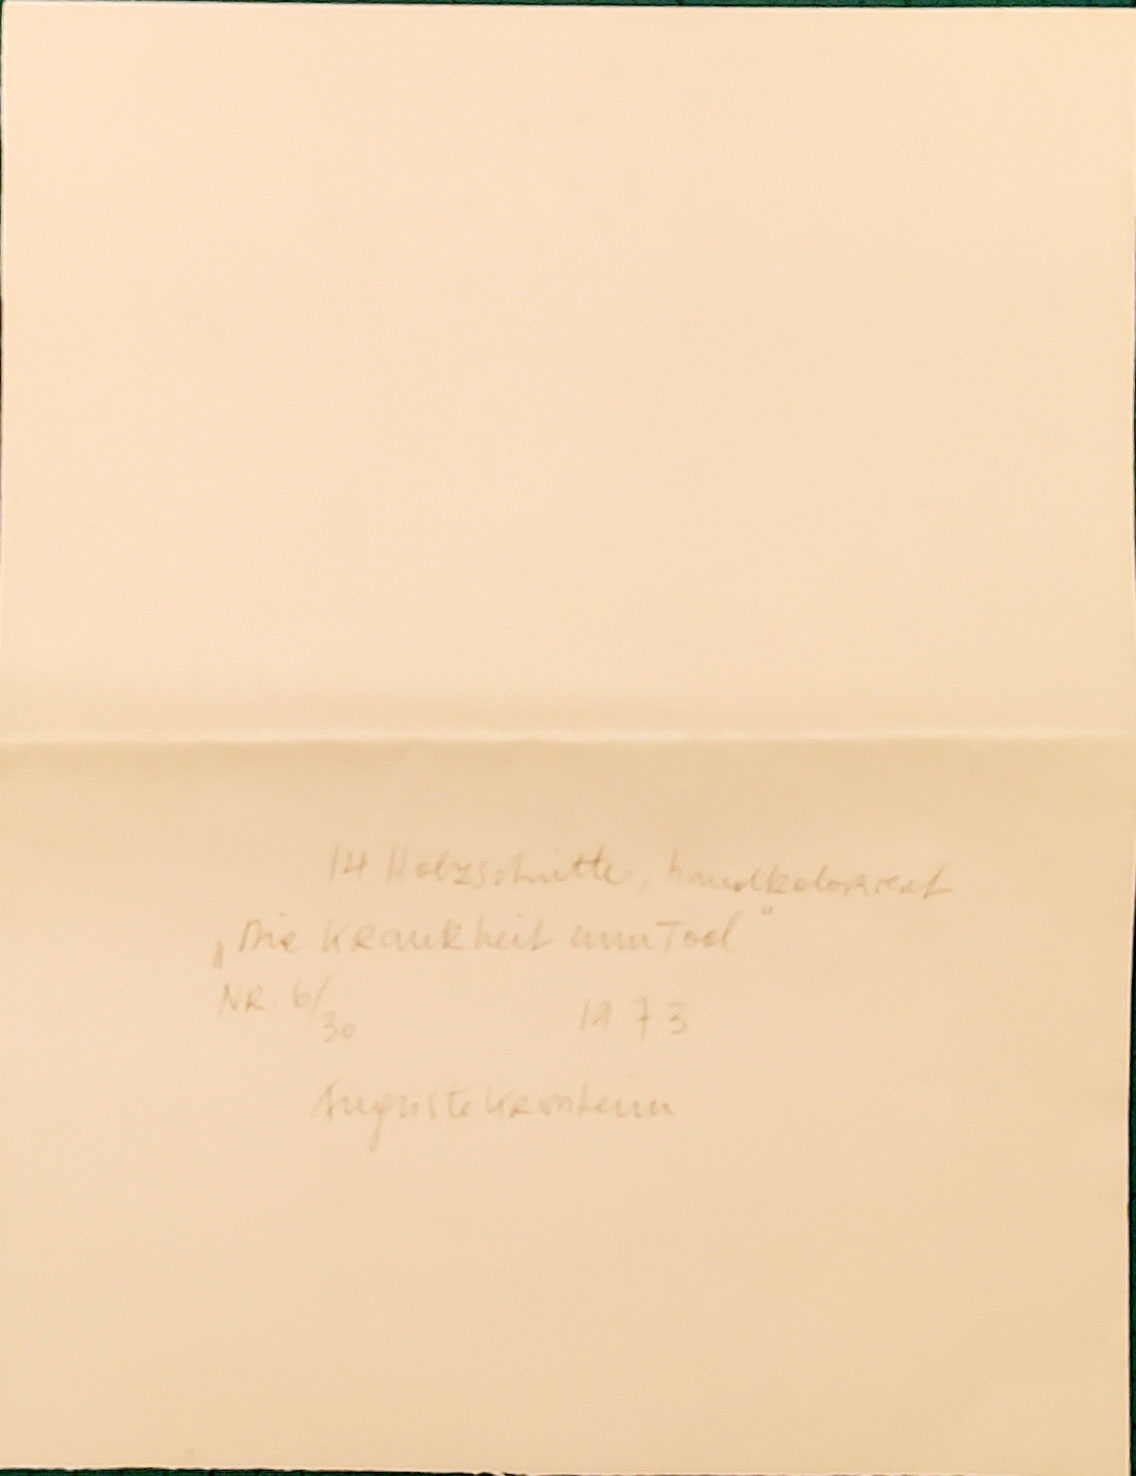 14 Holzschnitte, handkoloriert
„Die Krankheit zum Tod"
NR. 6/30 1973
Auguste Kronheim